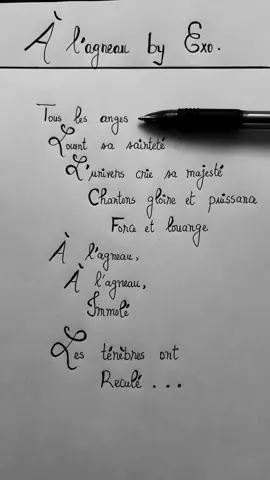 À l'agneau by Exo.
Tous les anges
Louent sa sainteté
L'univers crie sa majesté
Chantons gloire et puissance
Force et louange
À l'agneau,
À l'agneau,
Immolé
Les ténèbres ont
Reculé...